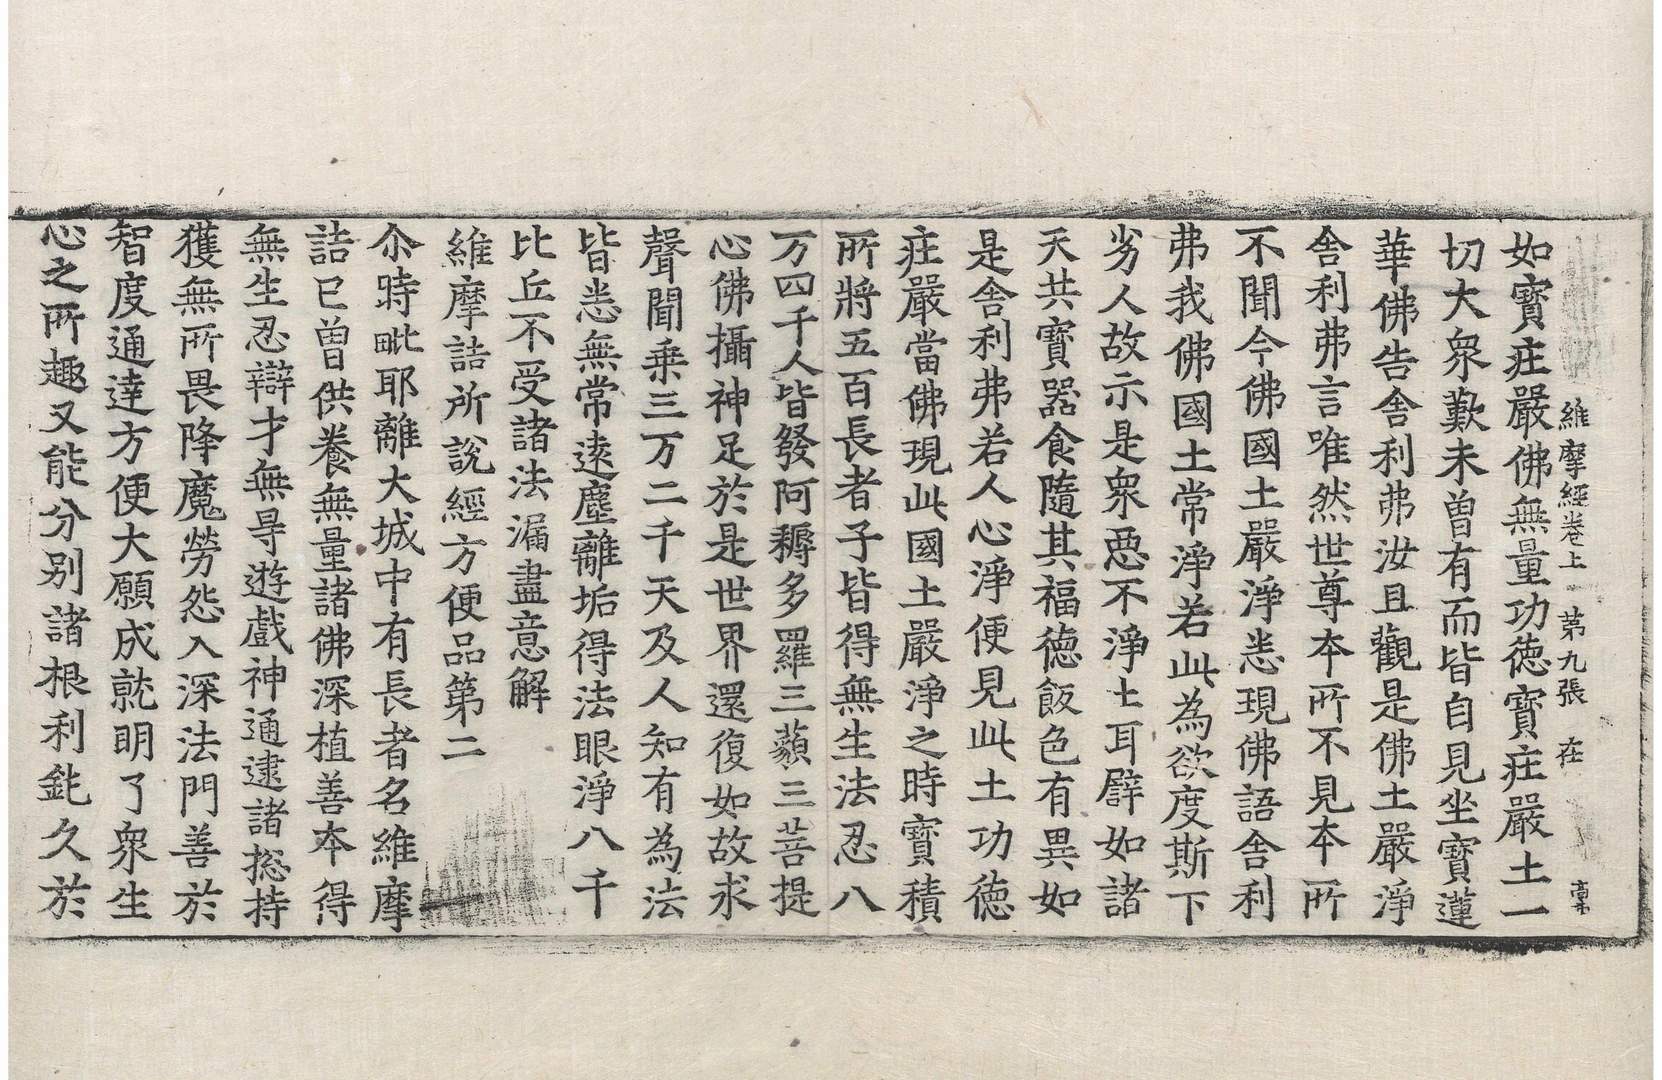 維摩經卷上 第九張 在
如寶庄嚴佛無量功德寶庄嚴土一
切大衆歎未曾有而皆自見坐寶蓮
華佛告舍利弗汝且觀是佛土嚴淨
舍利弗言唯然世尊本所不見本所
不聞今佛國土嚴淨悉現佛語舍利
弗我佛國土常淨若此為欲度斯下
劣人故示是衆惡不淨土耳譬如諸
天共寶器食隨其福德飯色有異如
是舍利弗若人心淨便見此土功德
庄嚴當佛現此國土嚴淨之時寶積
所將五百長者子皆得無生法忍八
万四千人皆發阿耨多羅三藐三菩提
心佛攝神足於是世界還復如故求
聲聞乘三万二千天及人知有為法
皆悉無常遠塵離垢得法眼淨八千
比丘不受諸法漏盡意解
維摩詰所說經方便品第二
尒時毗耶離大城中有長者名維摩
詰已曾供養無量諸佛深植善本得
無生忍辯才無㝵遊戲神通逮諸捴持
獲無所畏降魔勞怨入深法門善於
智度通達方便大願成就明了衆生
心之所趣又能分別諸根利鈍久於